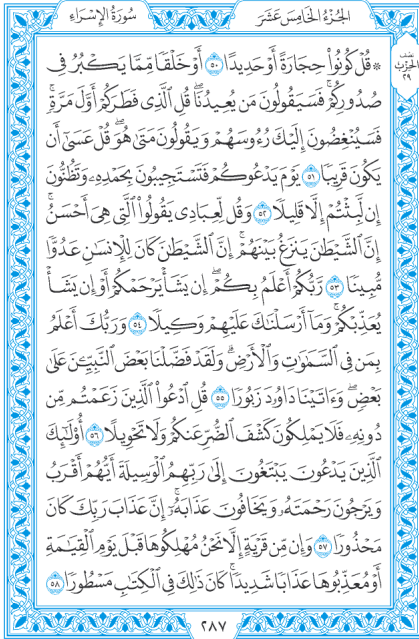 سُورَةُ الإِسْرَاءِ الجُزْءُ الخَامِسَ عَشَرَ
نصف الحزب ٢٩
۞ قُلْ كُونُوا۟ حِجَارَةً أَوْ حَدِيدًا ٥٠ أَوْ خَلْقًا مِّمَّا يَكْبُرُ فِى
صُدُورِكُمْ ۚ فَسَيَقُولُونَ مَن يُعِيدُنَا ۖ قُلِ ٱلَّذِى فَطَرَكُمْ أَوَّلَ مَرَّةٍ ۚ
فَسَيُنْغِضُونَ إِلَيْكَ رُءُوسَهُمْ وَيَقُولُونَ مَتَىٰ هُوَ ۖ قُلْ عَسَىٰٓ أَن
يَكُونَ قَرِيبًا ٥١ يَوْمَ يَدْعُوكُمْ فَتَسْتَجِيبُونَ بِحَمْدِهِۦ وَتَظُنُّونَ
إِن لَّبِثْتُمْ إِلَّا قَلِيلًا ٥٢ وَقُل لِّعِبَادِى يَقُولُوا۟ ٱلَّتِى هِىَ أَحْسَنُ ۚ
إِنَّ ٱلشَّيْطَٰنَ يَنزَغُ بَيْنَهُمْ ۚ إِنَّ ٱلشَّيْطَٰنَ كَانَ لِلْإِنسَٰنِ عَدُوًّا
مُّبِينًا ٥٣ رَّبُّكُمْ أَعْلَمُ بِكُمْ ۖ إِن يَشَأْ يَرْحَمْكُمْ أَوْ إِن يَشَأْ
يُعَذِّبْكُمْ ۚ وَمَآ أَرْسَلْنَٰكَ عَلَيْهِمْ وَكِيلًا ٥٤ وَرَبُّكَ أَعْلَمُ
بِمَن فِى ٱلسَّمَٰوَٰتِ وَٱلْأَرْضِ ۗ وَلَقَدْ فَضَّلْنَا بَعْضَ ٱلنَّبِيِّـۧنَ عَلَىٰ
بَعْضٍ ۖ وَءَاتَيْنَا دَاوُۥدَ زَبُورًا ٥٥ قُلِ ٱدْعُوا۟ ٱلَّذِينَ زَعَمْتُم مِّن
دُونِهِۦ فَلَا يَمْلِكُونَ كَشْفَ ٱلضُّرِّ عَنكُمْ وَلَا تَحْوِيلًا ٥٦ أُو۟لَٰٓئِكَ
ٱلَّذِينَ يَدْعُونَ يَبْتَغُونَ إِلَىٰ رَبِّهِمُ ٱلْوَسِيلَةَ أَيُّهُمْ أَقْرَبُ
وَيَرْجُونَ رَحْمَتَهُۥ وَيَخَافُونَ عَذَابَهُۥٓ ۚ إِنَّ عَذَابَ رَبِّكَ كَانَ
مَحْذُورًا ٥٧ وَإِن مِّن قَرْيَةٍ إِلَّا نَحْنُ مُهْلِكُوهَا قَبْلَ يَوْمِ ٱلْقِيَٰمَةِ
أَوْ مُعَذِّبُوهَا عَذَابًا شَدِيدًا ۚ كَانَ ذَٰلِكَ فِى ٱلْكِتَٰبِ مَسْطُورًا ٥٨
٢٨٧